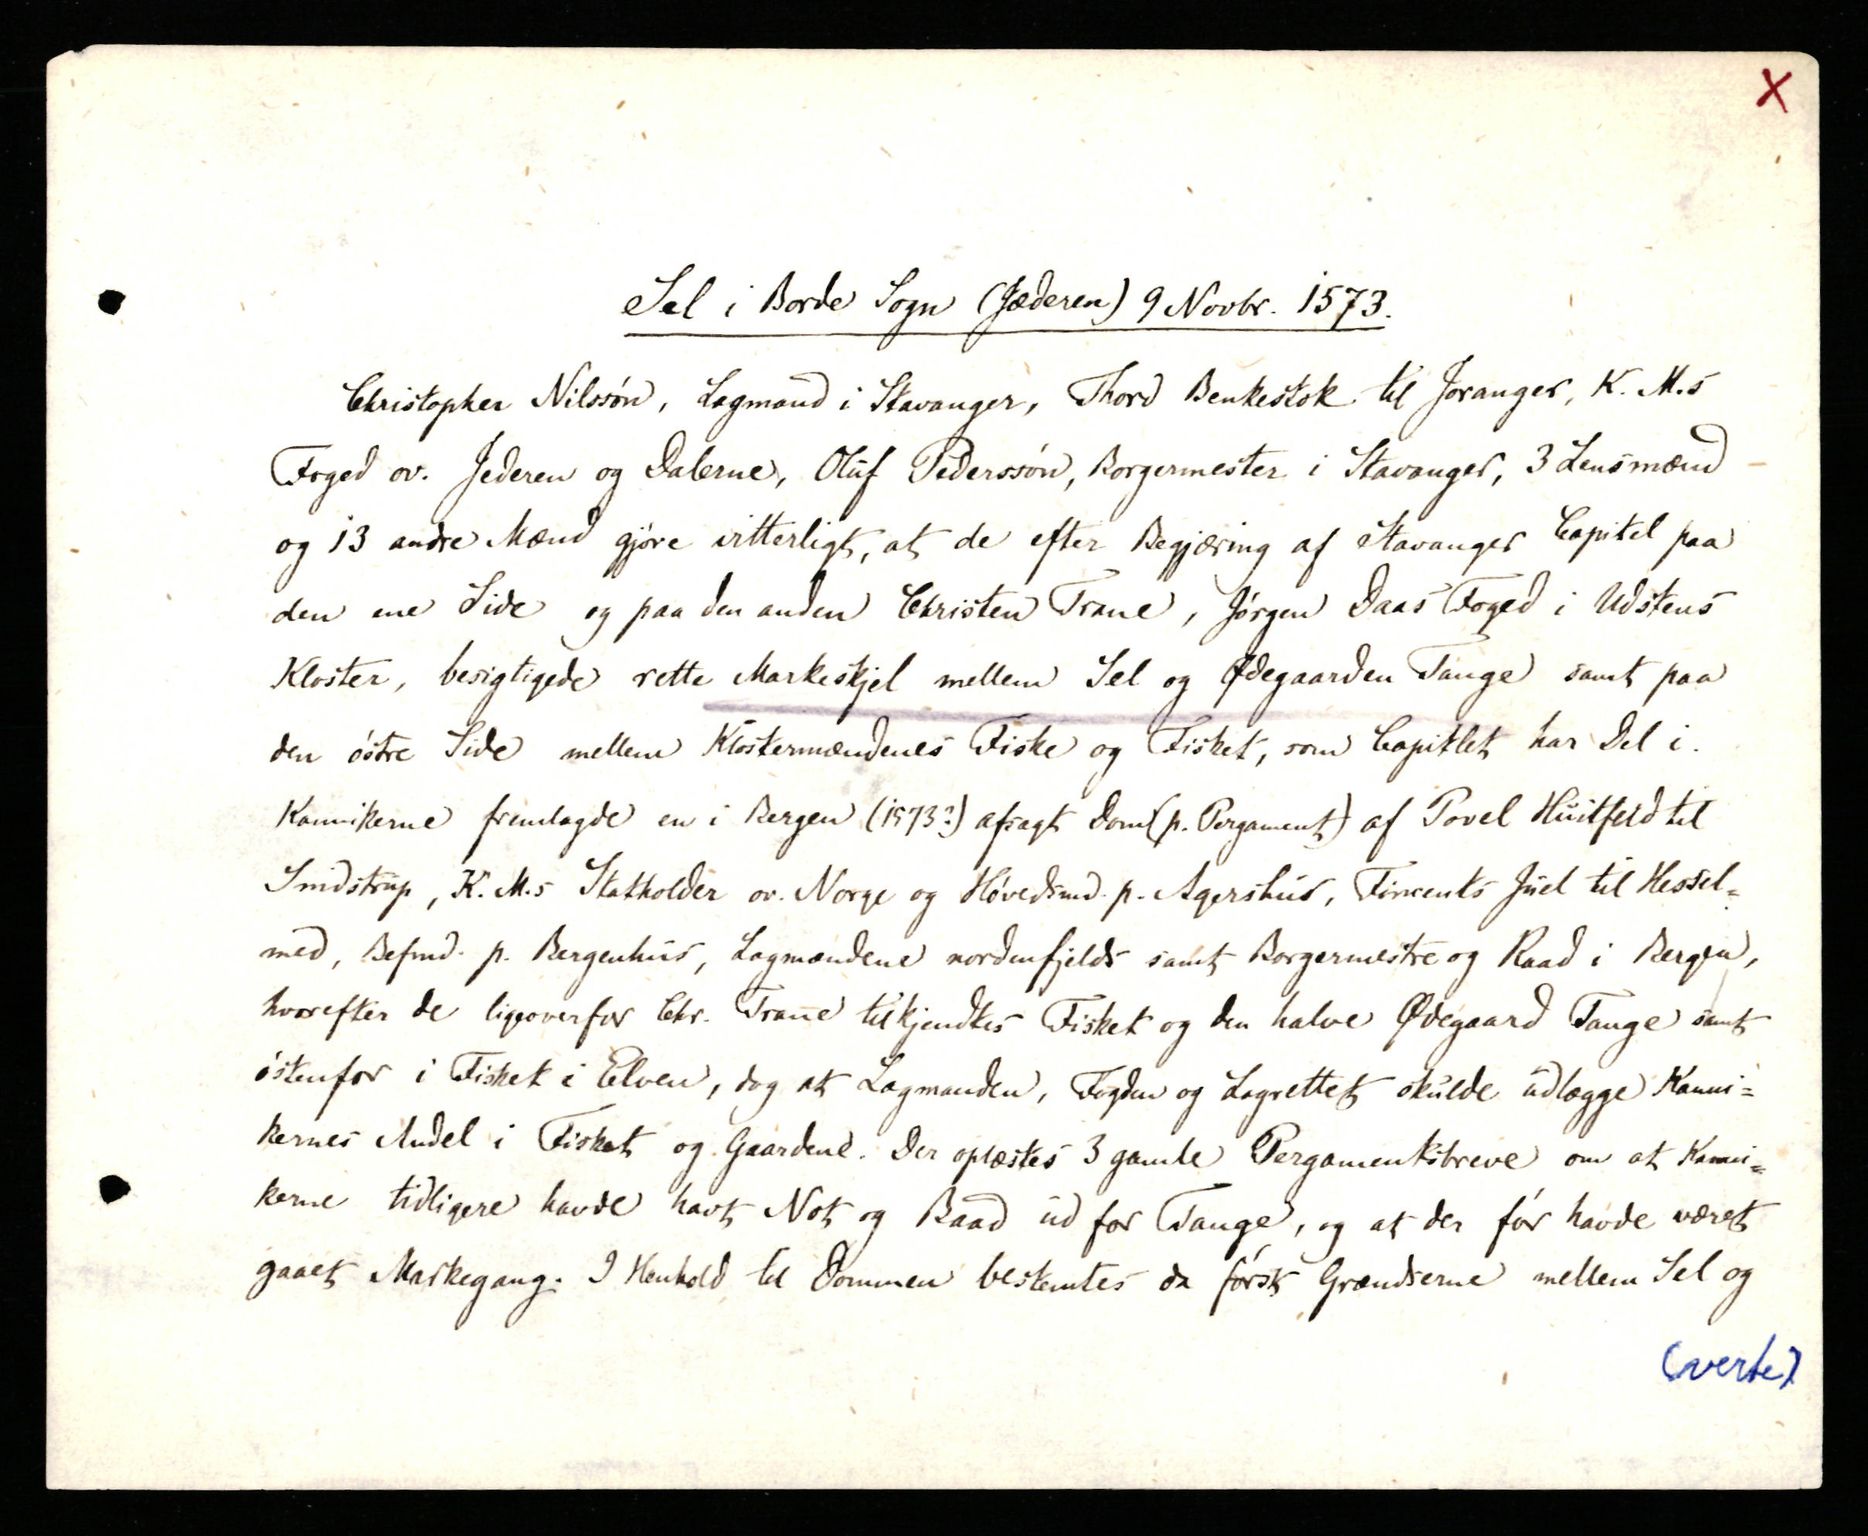 X
Sel i Borde Sogn (Jæderen) 9 Novbr. 1573.
Christopher Nilssøn, Lagmand i Stavanger, Thord Benkestok til Joranger, K. M.s
Foged ov. Jederen og Dalerne, Oluf Pederssøn, Borgermester i Stavanger, 3 Lensmænd
og 13 andre Mænd gjøre vitterligt, at de efter Begjæring af Stavanger Capitel paa
den ene Side og paa den anden Christen Trane, Jørgen Daas Foged i Udstens
Kloster, besigtigede rette Markeskjel mellem Sel og Ødegaarden Tange samt paa
den østre Side mellem Klostermændenes Fiske og Fisket, som Capitlet har Del i.
Kannikerne fremlagde en i Bergen (1573?) afsagt Dom (p. Pergament) af Povel Huitfeld til
Smidstrup, K. M.s Statholder ov. Norge og Høvedsmd. p. Agershus, Fincents Juel til Hessel=
med, Befmd. p. Bergenhus, Lagmændene nordenfjelds samt Borgermestre og Raad i Bergen,
hvorefter de ligeoverfor Chr. Trane tilkjendtes Fisket og den halve Ødegaard Tange samt
østenfor i Fisket i Elven, dog at Lagmanden, Fogden og Lagrettet skulde udlægge Kanni=
kernes Andel i Fisket og Gaardene. Der oplæstes 3 gamle Pergamentsbreve om at Kanni=
kerne tidligere havde havt Not og Baad ud for Tange, og at der før havde været
gaaet Markegang. I Henhold til Dommen bestemtes da først Grændserne mellem Sel og
(verte)